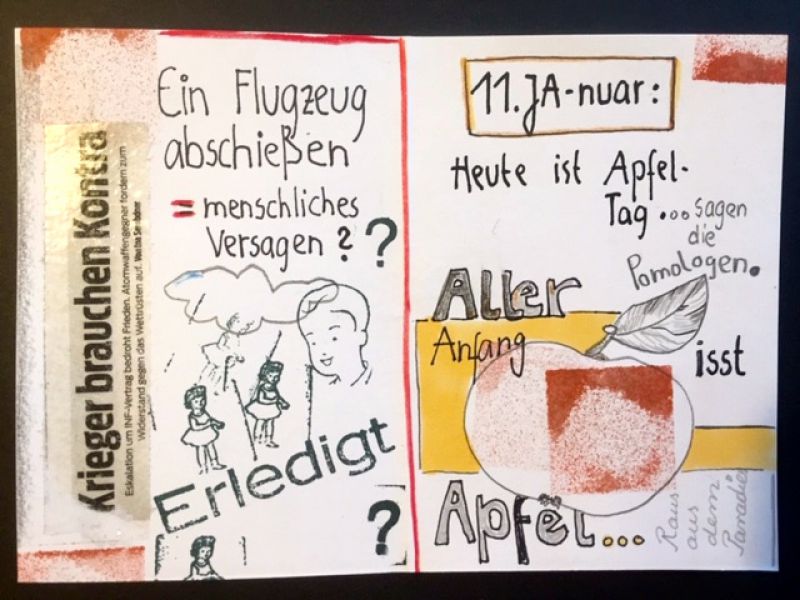 Krieger brauchen Kontra
Eskalation um INF-Vertrag bedroht Frieden. Atomwaffengegner fordern zum
Widerstand gegen das Wettrüsten auf.
Ein Flugzeug
abschießen
= menschliches
Versagen ? ?
Erledigt
?
11. JA-nuar:
Heute ist Apfel-
Tag ... sagen
die
Pomologen.
Aller
Anfang
isst
Apfel...
Raus
aus
dem
Paradies